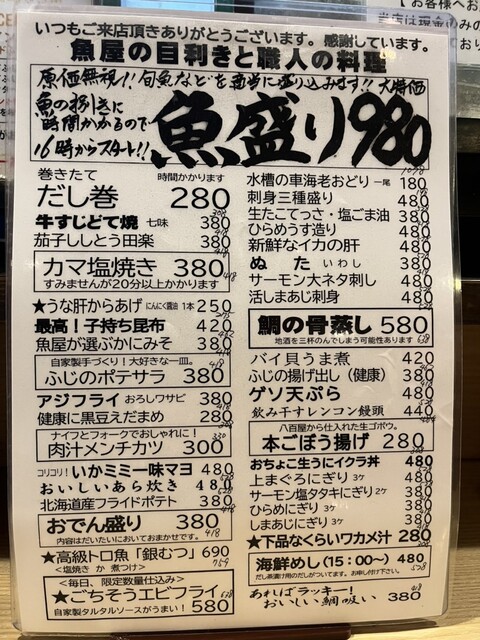 いつもご来店頂きありがとうございます。感謝しています。
魚屋の目利きと職人の料理
原価無視!!旬魚などを適当に盛り込みます!! 大特価
魚の捌きに
時間かかるので
16時からスタート!!
魚盛り980
1078
巻きたて 時間かかります
だし巻 280
308
牛すじどて焼 七味 380
418
茄子ししとう田楽 380
418
カマ塩焼き 380
418
すみませんが20分以上かかります
★うな肝からあげ にんにく醤油 1本 250
275
最高!子持ち昆布 420
462
魚屋が選ぶかにみそ 380
418
自家製手づくり!大好きな一皿。
ふじのポテサラ 380
アジフライ おろしワサビ 380
健康に黒豆えだまめ 280
308
ナイフとフォークでおしゃれに!
肉汁メンチカツ 300
330
コリコリ!いかミミ一味マヨ 480
528
おいしいあら炊き 480
528
北海道産フライドポテト 380
418
おでん盛り 380
418
内容はだいたいにおいておまかせです。
★高級トロ魚「銀むつ」690
759
<塩焼き か 煮つけ>
<毎日、限定数量仕込み>
★ごちそうエビフライ
638
自家製タルタルソースがうまい! 580
水槽の車海老おどり 一尾 180
198
刺身三種盛り 480
生たこてっさ・塩ごま油 380
ひらめうす造り 480
新鮮なイカの肝 480
ぬた いわし 380
サーモン大ネタ刺し 480
活しまあじ刺身 480
鯛の骨蒸し 580
638
地酒を三杯のんでしまう可能性あります
バイ貝うま煮 420
ふじの揚げ出し(健康)380
ゲソ天ぷら 480
飲み干すレンコン饅頭 440
484
八百屋から仕入れた生ゴボウ。
本ごぼう揚げ 280
308
おちょこ生うにイクラ丼 480
上まぐろにぎり 3ケ 480
サーモン塩タタキにぎり 2ケ 380
ひらめにぎり 3ケ 480
しまあじにぎり 3ケ 480
★下品なくらいワカメ汁 280
308
海鮮めし(15:00〜)480
528
だし茶漬け用のだしがついてます。お申し付け下さい。
あればラッキー!
おいしい鯛吸い 380
418